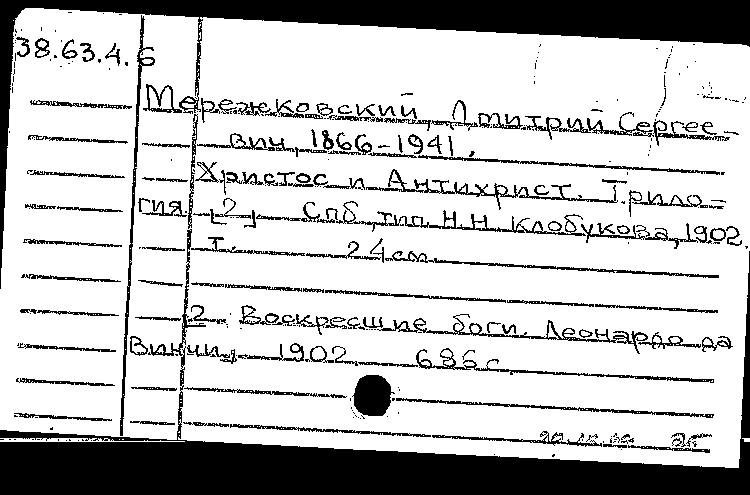 38.63.4.6
Мережковский, Дмитрий Сергее-
вич, 1866-1941.
Христос и Антихрист. Трило-
гия [2] Спб, тип. Н.Н. Клобукова, 1902.
т. 24 см.
2. Воскресшие боги. Леонардо да
Винчи, 1902. 686 с.